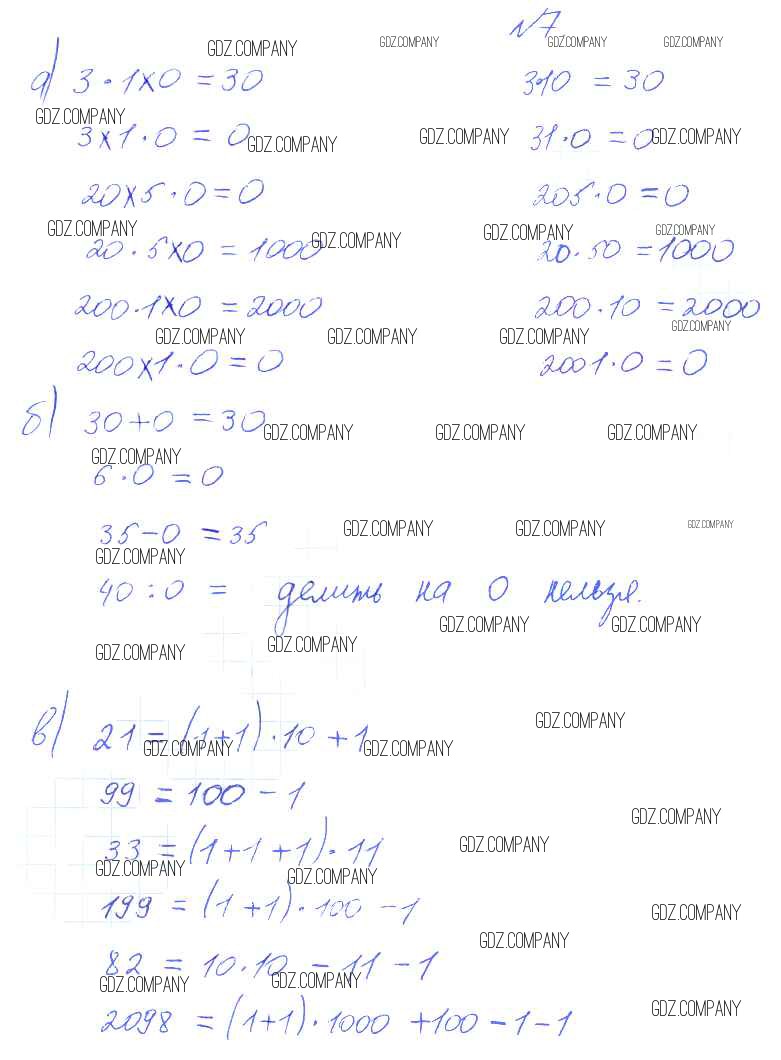 N7
GDZ.COMPANY GDZ.COMPANY GDZ.COMPANY GDZ.COMPANY
а) 3 · 1×0 = 30 3·10 = 30
GDZ.COMPANY
3×1 · 0 = 0 31·0 = 0
GDZ.COMPANY GDZ.COMPANY GDZ.COMPANY
20×5 · 0 = 0 205·0 = 0
GDZ.COMPANY GDZ.COMPANY GDZ.COMPANY GDZ.COMPANY
20 · 5×0 = 1000 20·50 = 1000
200·1×0 = 2000 200·10 = 2000
GDZ.COMPANY GDZ.COMPANY GDZ.COMPANY GDZ.COMPANY
200×1·0 = 0 2001·0 = 0
б) 30+0 = 30
GDZ.COMPANY GDZ.COMPANY GDZ.COMPANY
GDZ.COMPANY
6·0 = 0
35-0 = 35
GDZ.COMPANY GDZ.COMPANY GDZ.COMPANY
GDZ.COMPANY
40:0 = делить на 0 нельзя.
GDZ.COMPANY GDZ.COMPANY
GDZ.COMPANY GDZ.COMPANY
GDZ.COMPANY
в) 21 = (1+1)·10 + 1
GDZ.COMPANY GDZ.COMPANY
99 = 100 - 1
GDZ.COMPANY
33 = (1+1+1)·11
GDZ.COMPANY
GDZ.COMPANY GDZ.COMPANY
199 = (1+1)·100 - 1
GDZ.COMPANY
GDZ.COMPANY
82 = 10·10 - 11 - 1
GDZ.COMPANY GDZ.COMPANY
2098 = (1+1)·1000 + 100 - 1 - 1
GDZ.COMPANY